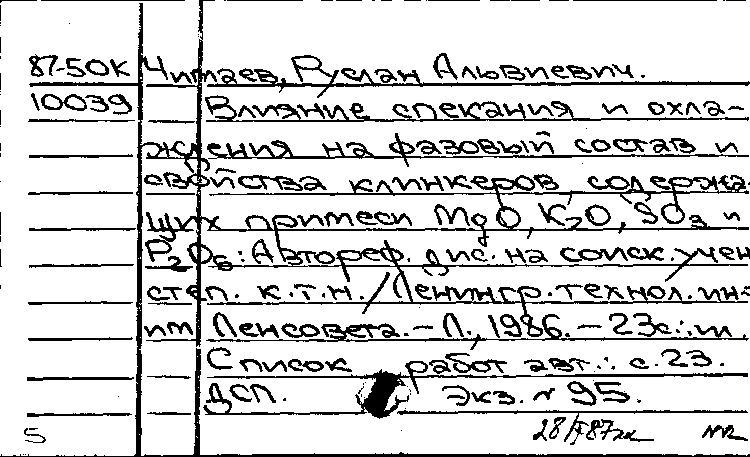 87-50К Чипаев, Руслан Альвиевич.
10039 Влияние спекания и охла-
ждения на фазовый состав и
свойства клинкеров, содержа-
щих примеси MgO, K2O, SO3 и
P2O5: Автореф. дис. на соиск. учен
степ. к.т.н. / Ленингр. технол. ин-
им Ленсовета. - Л., 1986. - 23с.: ил.
Список работ авт.: с.23.
ДСП. Экз. № 95.
5